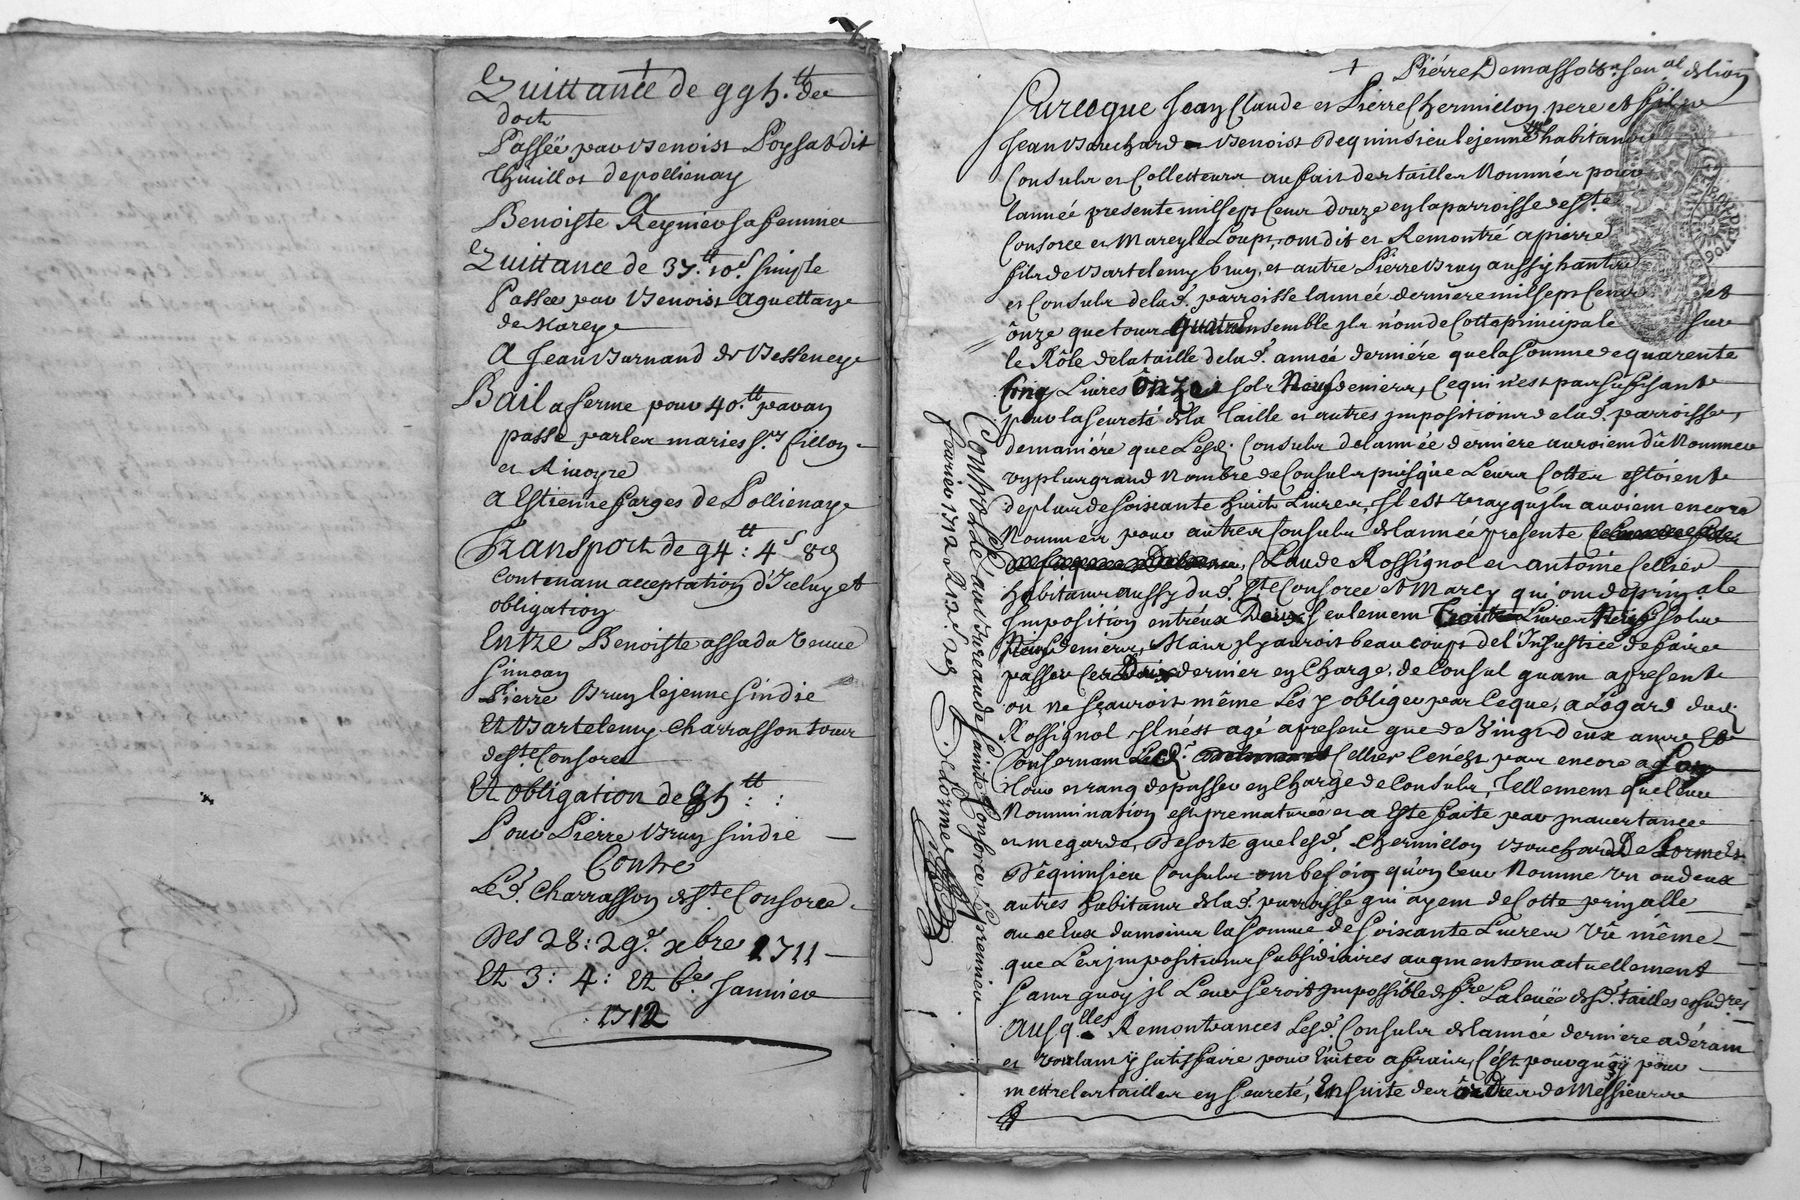 Quittance de 995.tt de
doct
Passée par Benoist Poysat dit
Chuillot depollienay
A
Benoiste Reynier sa femme
Quittance de 37.tt 10.s simple
Passée par Benoist Aguettaz
de Marcy
A Jean Burnand de Vesseney
Bail a ferme pour 40.tt par an
passé par les maries Srs fillon
et Rivoyre
A Estienne farges de Pollienay
Transport de 94.tt: 4s 8d
contenam acceptation d'Iceluy et
obligation
Entre Benoiste assada veuve
simoan
Pierre Bruy lejeune sindic
Et Bartelemy Charrasson tous
de Ste Consorce
Et obligation de
Pour Pierre Bruy sindic
Contre
Led. Charrasson de Ste Consorce
Des 28: 29e xbre 1711
Et 3: 4: Et 6es Janvier
1712
Pierre Demasso sen.al de lion
Surceque Jean Claude et Pierre Chermillon pere et fils
Jean Bouchard Benoist Dequinsieu lejeune habitans
Consuls et Collecteurs au fait des tailles Nommés pour
lannée presente mil sept Cens douze en la parroisse de Ste
Consorce et Marcy le Loup, ont dit et Remontré a pierre
fils de Bartelemy bruy, et autre Pierre Bruy aussy hantre
et Consuls de lad. parroisse lannée derniere mil sept Cens et
ônze que tous quatre Ensemble jls n'om de Cotte principale sur
le Rôle de la taille de lad. année derniére que la somme de quarente
Cinq Livres ônze sols Neuf deniers, Ce qui n'est pas suffisant
pour la seureté de la Taille et autres jmpositions de lad. parroisse,
de maniére que Lesd. Consuls de lannée derniere auroient dû Nommer
un plus grand Nombre de Consuls puisque Leurs Cottes estoient
de plus de soixante huit Livres, Il est vray qu'jls auroient encore
Nommés pour autres Consuls de lannée presente
Claude Rossignol et antoine Cellier
habitans aussy dud. Ste Consorce et Marcy qui om de prinle
Imposition entréux Deux seulement Livres sols
deniers, Mais jl y auroit beaucoup de l'Injustice de faire
passer Ces Deux dernier en Charge, de Consul quam a presente
on ne sçauroit même Les y obliger parceque, a Légard dud.
Rossignol Il n'est agé a present que de vingt deux ans Et
Consernam Led. Cellier Ce n'est pas encore a son
Tour et rang de passer en Charge de Consuls, Tellement que leur
Nommination est prematurée et a Esté faite par jnavertance
et megarde, De sorte que lesd. Chermillon Bouchard De Lorme Et
Déquinsieu Consuls om besoin qu'on leur Nomme un ou deux
autres habitans de lad. parroisse qui ayent de Cotte prinzalle
au deux du moins la somme de soixante Livres vû même
que Les jmpositions subsidiaires augmentem actuellement
sans quoy jl Leur seroit jmpossible de fre La levée desd. tailles
Ausq.lles Remontrances Lesd. Consuls de lannée derniere adéram
et voulam y satisfaire pour Eviter a frais, C'est pourquoy pour
mettre les tailles en seureté, En suite des ôrdres de Messieurs
Controllé au Bureau de sainte Consorce, Le premier
Janvier 1712 R 12.s
Delorme